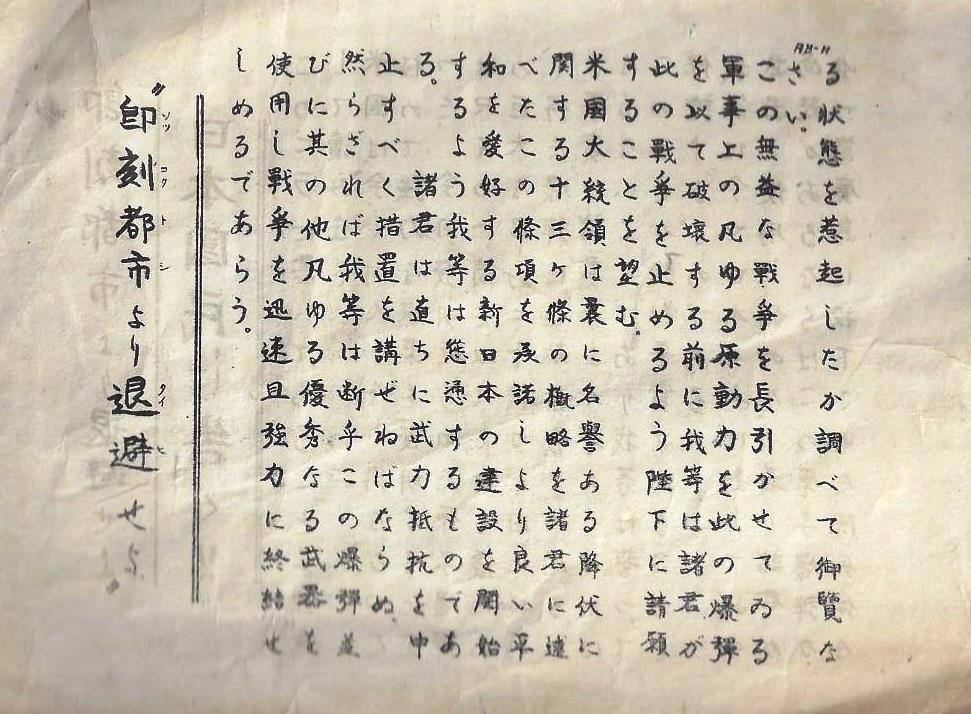 AB-11
る状態を惹起したか調べて御覧な
さい。
この無益な戦争を長引かせてゐる
軍事上の凡ゆる原動力を此の爆弾
を以て破壊する前に我等は諸君が
此の戦争を止めるよう陛下に請願
することを望む。
米国大統領は曩に名誉ある降伏に
関する十三ヶ條の概略を諸君に述
べたこの條項を承諾しより良い平
和を愛好する新日本の建設を開始
するよう我等は慫慂するものであ
る。 諸君は直ちに武力抵抗を中
止すべく措置を講ぜねばならぬ。
然らざれば我等は断乎この爆弾並
びに其の他凡ゆる優秀なる武器を
使用し戦争を迅速且強力に終結せ
しめるであらう。
"即刻都市より退避せよ"
ソッコクトシ タイヒ